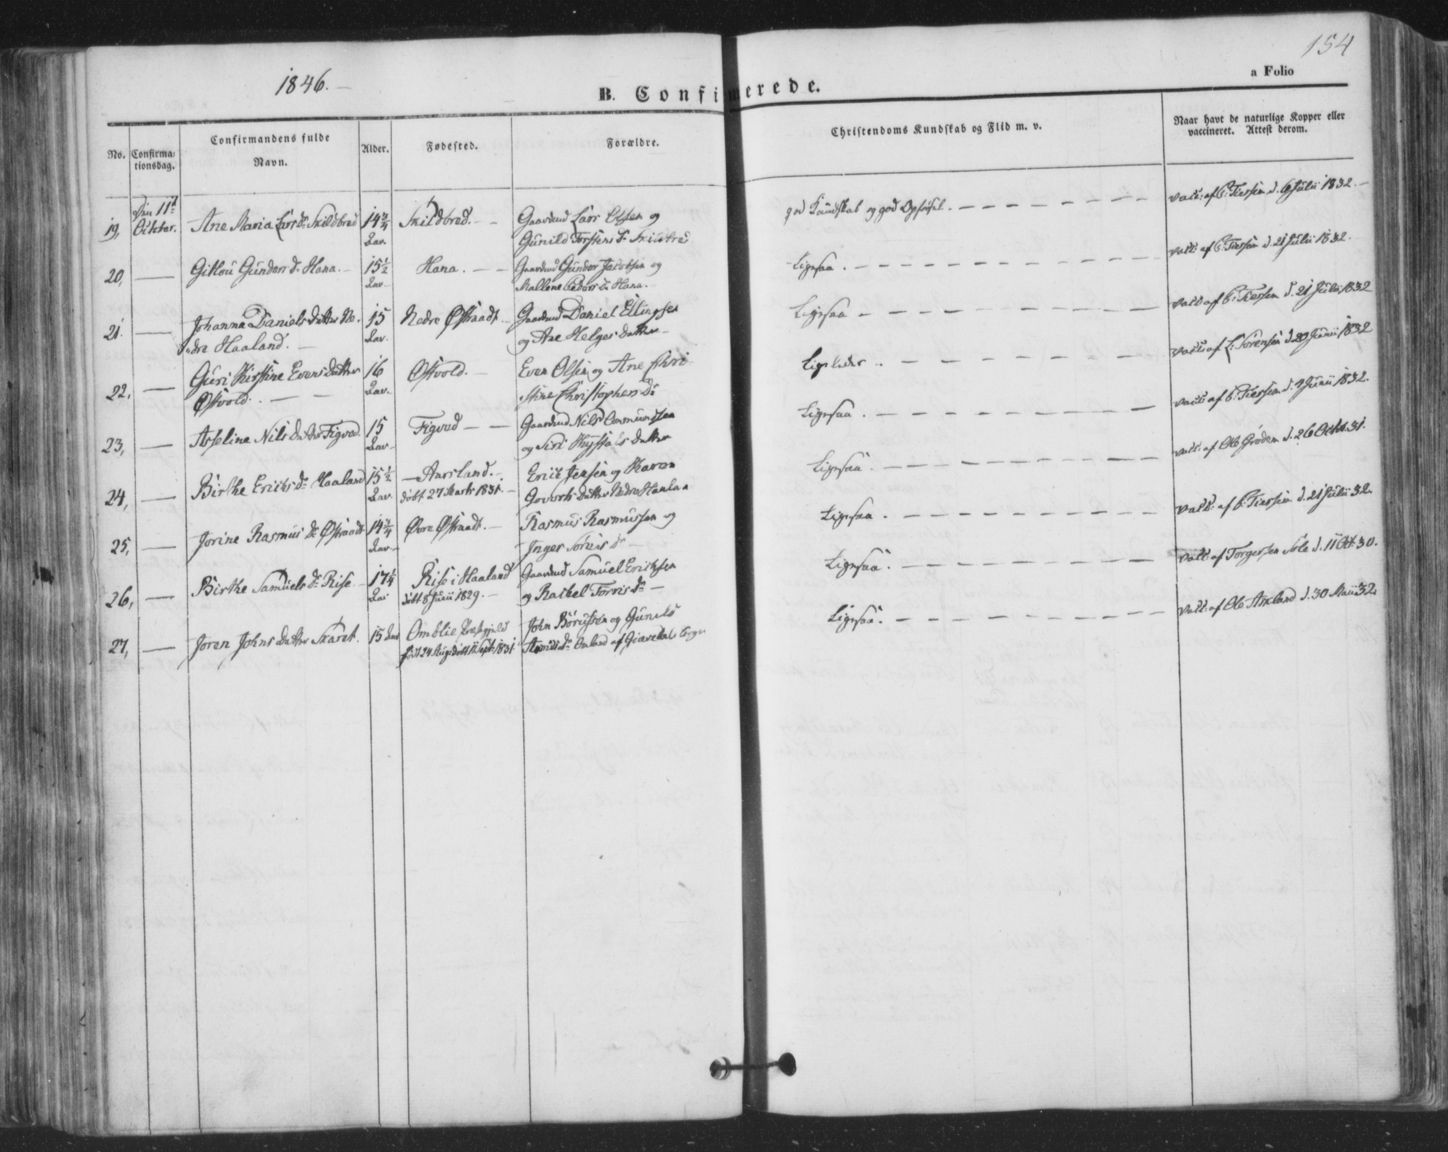 154
1846.
a Folio
B. Confirmerede.
No.
Confirma-
tionsdag.
Confirmandens fulde
Navn.
Alder.
Fødested.
Forældre.
Christendoms Kundskab og Flid m. v.
Naar havt de naturlige Kopper eller
vaccineret. Attest derom.
Den 11te
19, Octobr. Ane Maria Lars D. Skildbred 14 3/4 Aar Skildbred. Gaardmd Lars Olsen og
Gunild Torstens D. Skildbred god Kundskab og god Opførsel. vacc. af B. Tiersen d. 6 Julii 1832.
20, Gitlou Gunders D. Hana. 15 1/2 Aar Hana. Gaardmd Gunder Jacobsen og
Mallene Peders D. Hana. Ligesaa. vacc. af B. Tiersen d. 21 Julii 1832.
21. Johanna Daniels datter Ne-
dre Haaland. 15 Aar Nedre Østraadt Gaardmd Daniel Ellingsen
og Ane Helges datter Ligesaa vacc. af B. Tiersen d. 21 Julii 1832
22, Guri Kirstine Evens datter
Østvold. 16 Aar Østvold. Even Olsen og Ane Chri-
stine Christophers D. Ligeledes. vacc. af L. Sørensen d. 29 Junii 1832
23, Aseline Nils datter Figved 15 Aar Figved Gaardmd Nils
og Siri datter Ligesaa. vacc. af B. Tiersen d. Junii 1832.
24, Birthe Erichs D. Haaland 15 1/2 Aar Aarsland.
døbt 27 Marts 1831. Erich Jensen og Karen
datter Nedre Haaland Ligesaa. vacc. af Ole d. 26 Octbr. 31.
25, Jorine Rasmus D. Østraadt 14 3/4 Aar Øvre Østraadt. Rasmus Rasmussen og
Inger Sørens D. Ligesaa. vacc. af B. Tiersen d. 21 Julii 32.
26, Birthe Samuels D. Rise 17 1/4 Aar Rise i Haaland
døbt 8 Junii 1829. Gaardmd Samuel Erichsen
og Rachel Torris D. Ligesaa. vacc. af Torgersen Sole d. 11 Oct 30.
27, Joren Johns datter Skaret 15 Aar Omblie
født 24 Aug. døbt 11 Sept. 1831. John Børusen og Gunild
Ligesaa. vacc. af Ole Axeland d. 30 Maii 32